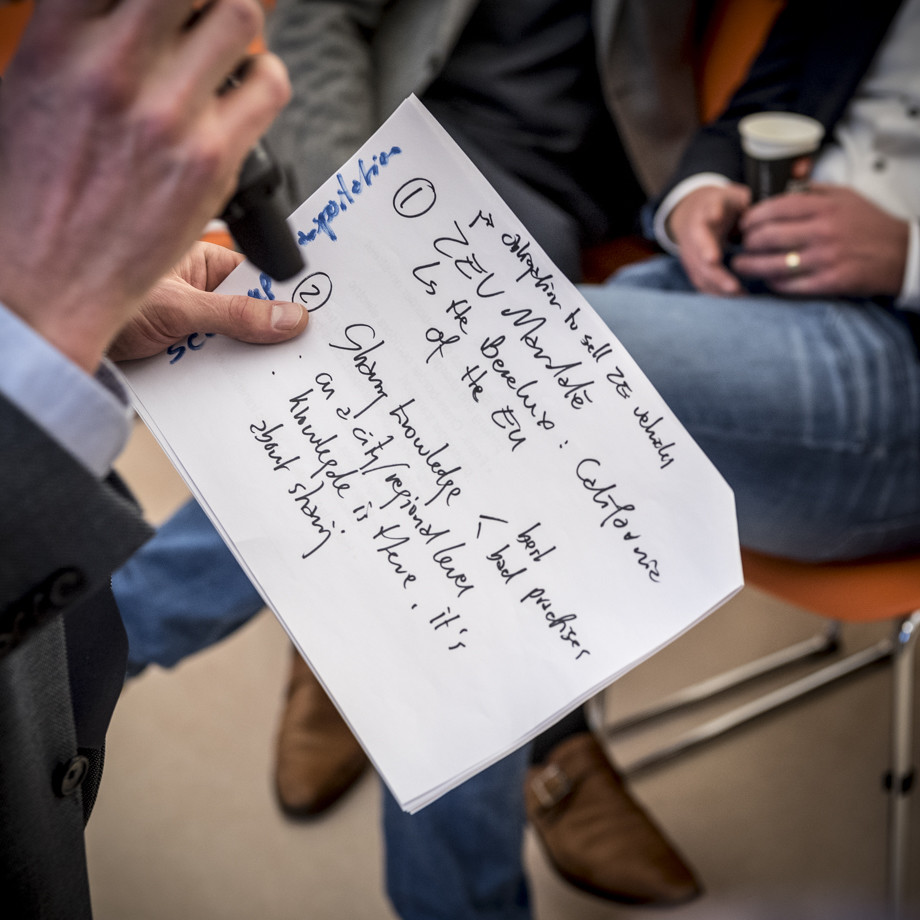 obligation to sell ZE vehicles
① ZEV Mandate
the Benelux : California
of the EU
best
② Sharing knowledge < bad practises
on a city/regional level
knowlegde is there, it's
about sharing